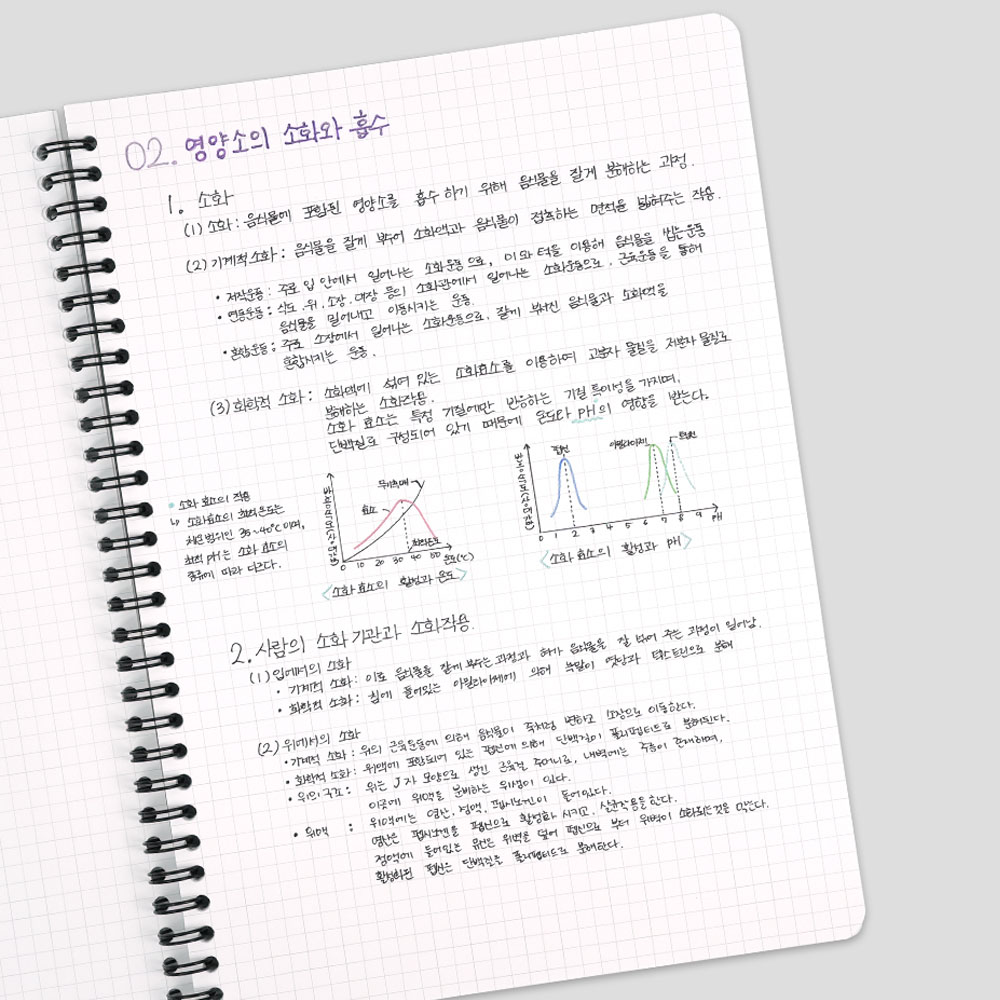 02. 영양소의 소화와 흡수
1. 소화
(1) 소화 : 음식물에 포함된 영양소를 흡수 하기 위해 음식물을 잘게 분해하는 과정.
(2) 기계적 소화 : 음식물을 잘게 부수어 소화액과 음식물이 접촉하는 면적을 넓혀주는 작용.
• 저작운동 : 주로 입 안에서 일어나는 소화운동으로, 이와 턱을 이용해 음식물을 씹는 운동
• 연동운동 : 식도, 위, 소장, 대장 등의 소화관에서 일어나는 소화운동으로, 근육운동을 통해
음식물을 밀어내고 이동시키는 운동.
• 혼합운동 : 주로 소장에서 일어나는 소화운동으로, 잘게 부서진 음식물과 소화액을
혼합시키는 운동.
(3) 화학적 소화 : 소화액에 섞여 있는 소화효소를 이용하여 고분자 물질을 저분자 물질로
분해하는 소화작용.
소화 효소는 특정 기질에만 반응하는 기질 특이성을 가지며,
단백질로 구성되어 있기 때문에 온도와 pH의 영향을 받는다.
소화 효소의 작용
↳ 소화효소의 최적온도는
체온 범위인 35~40°C 이며,
최적 pH는 소화 효소의
종류에 따라 다르다.
반응속도(상댓값)
무기촉매
효소
최적온도
0 10 20 30 40 50 온도(°C)
<소화 효소의 활성과 온도>
반응속도(상댓값)
펩신
아밀라아제
트립신
0 1 2 3 4 5 6 7 8 9 pH
<소화 효소의 활성과 pH>
2. 사람의 소화 기관과 소화작용.
(1) 입에서의 소화
• 기계적 소화 : 이로 음식물을 잘게 부수는 과정과 혀가 음식물을 잘 섞어 주는 과정이 일어남.
• 화학적 소화 : 침에 들어있는 아밀라아제에 의해 녹말이 엿당과 덱스트린으로 분해
(2) 위에서의 소화
• 기계적 소화 : 위의 근육운동에 의해 음식물이 죽처럼 변하고 소장으로 이동한다.
• 화학적 소화 : 위액에 포함되어 있는 펩신에 의해 단백질이 폴리펩티드로 분해된다.
• 위의 구조 : 위는 J자 모양으로 생긴 근육질 주머니로, 내벽에는 주름이 존재하며,
이곳에 위액을 분비하는 위샘이 있다.
• 위액 : 위액에는 염산, 점액, 펩시노겐이 들어있다.
염산은 펩시노겐을 펩신으로 활성화 시키고, 살균작용을 한다.
점액에 들어있는 뮤신은 위벽을 덮어 펩신으로 부터 위벽이 소화되는것을 막는다.
활성화된 펩신은 단백질을 폴리펩티드로 분해한다.